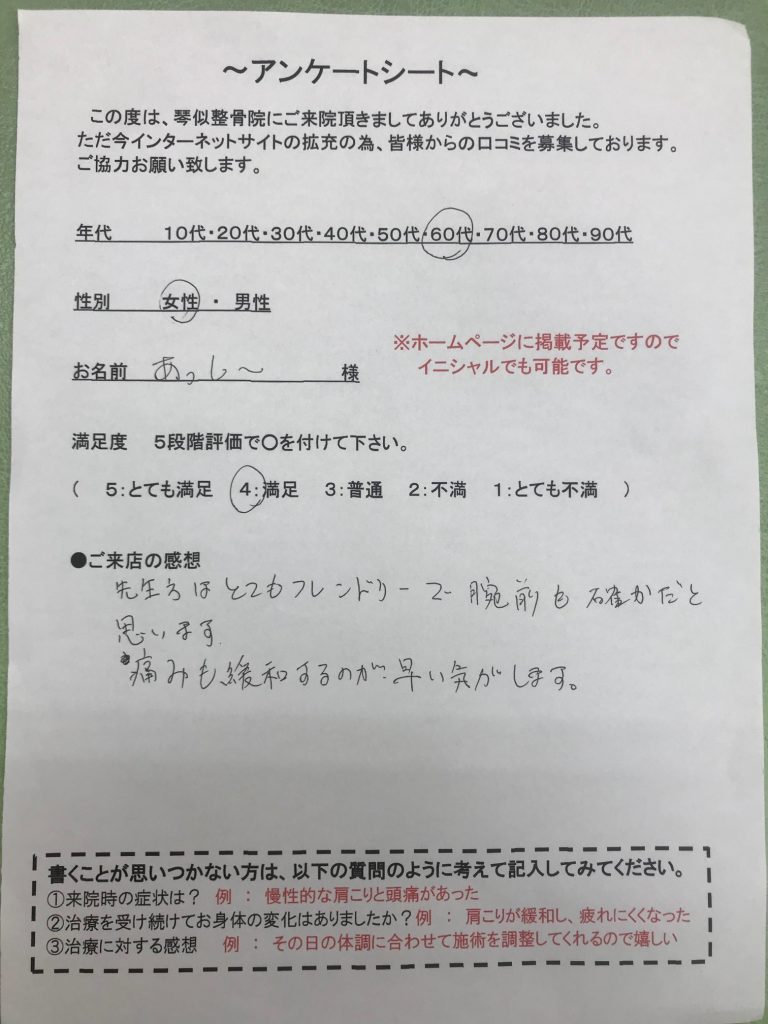 ～アンケートシート～
この度は、琴似整骨院にご来院頂きましてありがとうございました。
ただ今インターネットサイトの拡充の為、皆様からの口コミを募集しております。
ご協力お願い致します。
年代 10代・20代・30代・40代・50代・60代・70代・80代・90代
性別 女性 ・ 男性
※ホームページに掲載予定ですので
イニシャルでも可能です。
お名前 あっし～ 様
満足度 5段階評価で〇を付けて下さい。
( 5：とても満足 4：満足 3：普通 2：不満 1：とても不満 )
●ご来店の感想
先生方はとてもフレンドリーで腕前も確かだと
思います
痛みも緩和するのが早い気がします。
書くことが思いつかない方は、以下の質問のように考えて記入してみてください。
①来院時の症状は？ 例 ： 慢性的な肩こりと頭痛があった
②治療を受け続けてお身体の変化はありましたか？例 ： 肩こりが緩和し、疲れにくくなった
③治療に対する感想 例 ： その日の体調に合わせて施術を調整してくれるので嬉しい